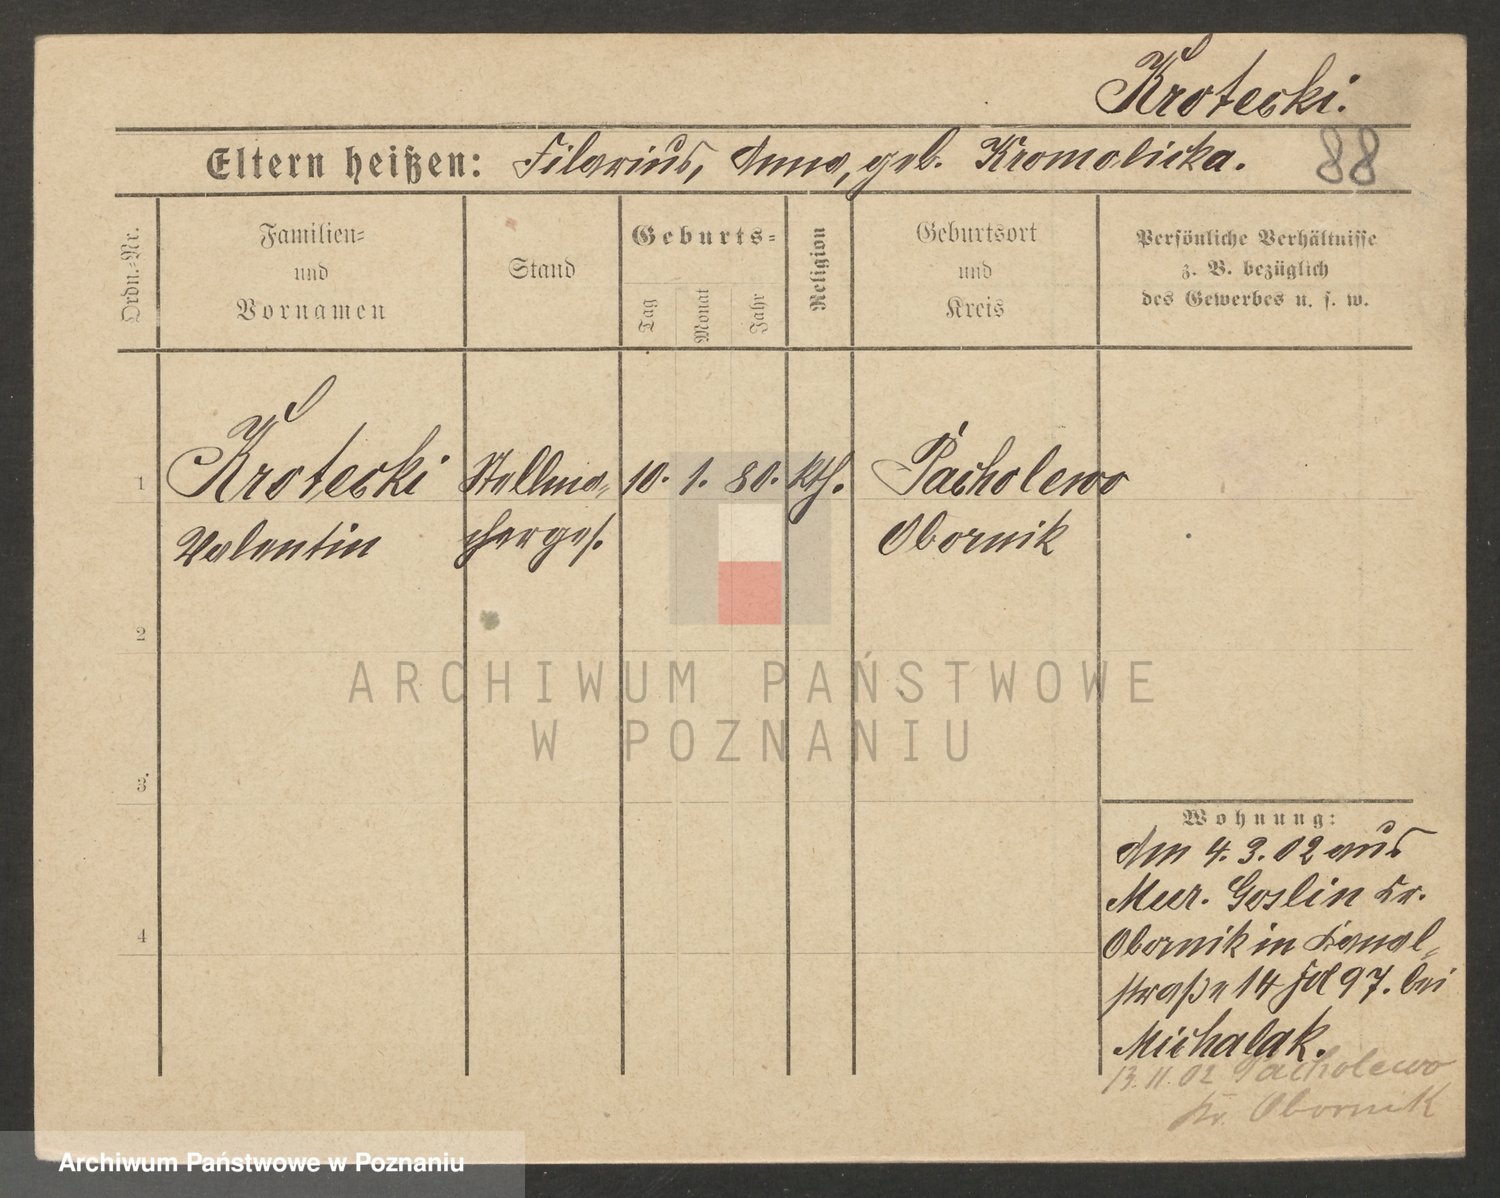 Krotecki.
Eltern heißen: Filarius, Anna, geb. Kromolicka.
88
Ordn.-Nr.
Familien-
und
Vornamen
Stand
Geburts-
Tag
Monat
Jahr
Religion
Geburtsort
und
Kreis
Persönliche Verhältnisse
z. B. bezüglich
des Gewerbes u. s. w.
1 Krotecki Stellma- 10. 1. 80. kth. Pacholewo
Valentin cherges. Obornik
2
3
4
Wohnung:
Am 4. 3. 02 aus
Mur. Goslin Kr.
Obornik in Kanal-
straße 14 97. bei
Michalak.
13. 11. 02 Pacholewo
Kr. Obornik
ARCHIWUM PAŃSTWOWE
W POZNANIU
Archiwum Państwowe w Poznaniu